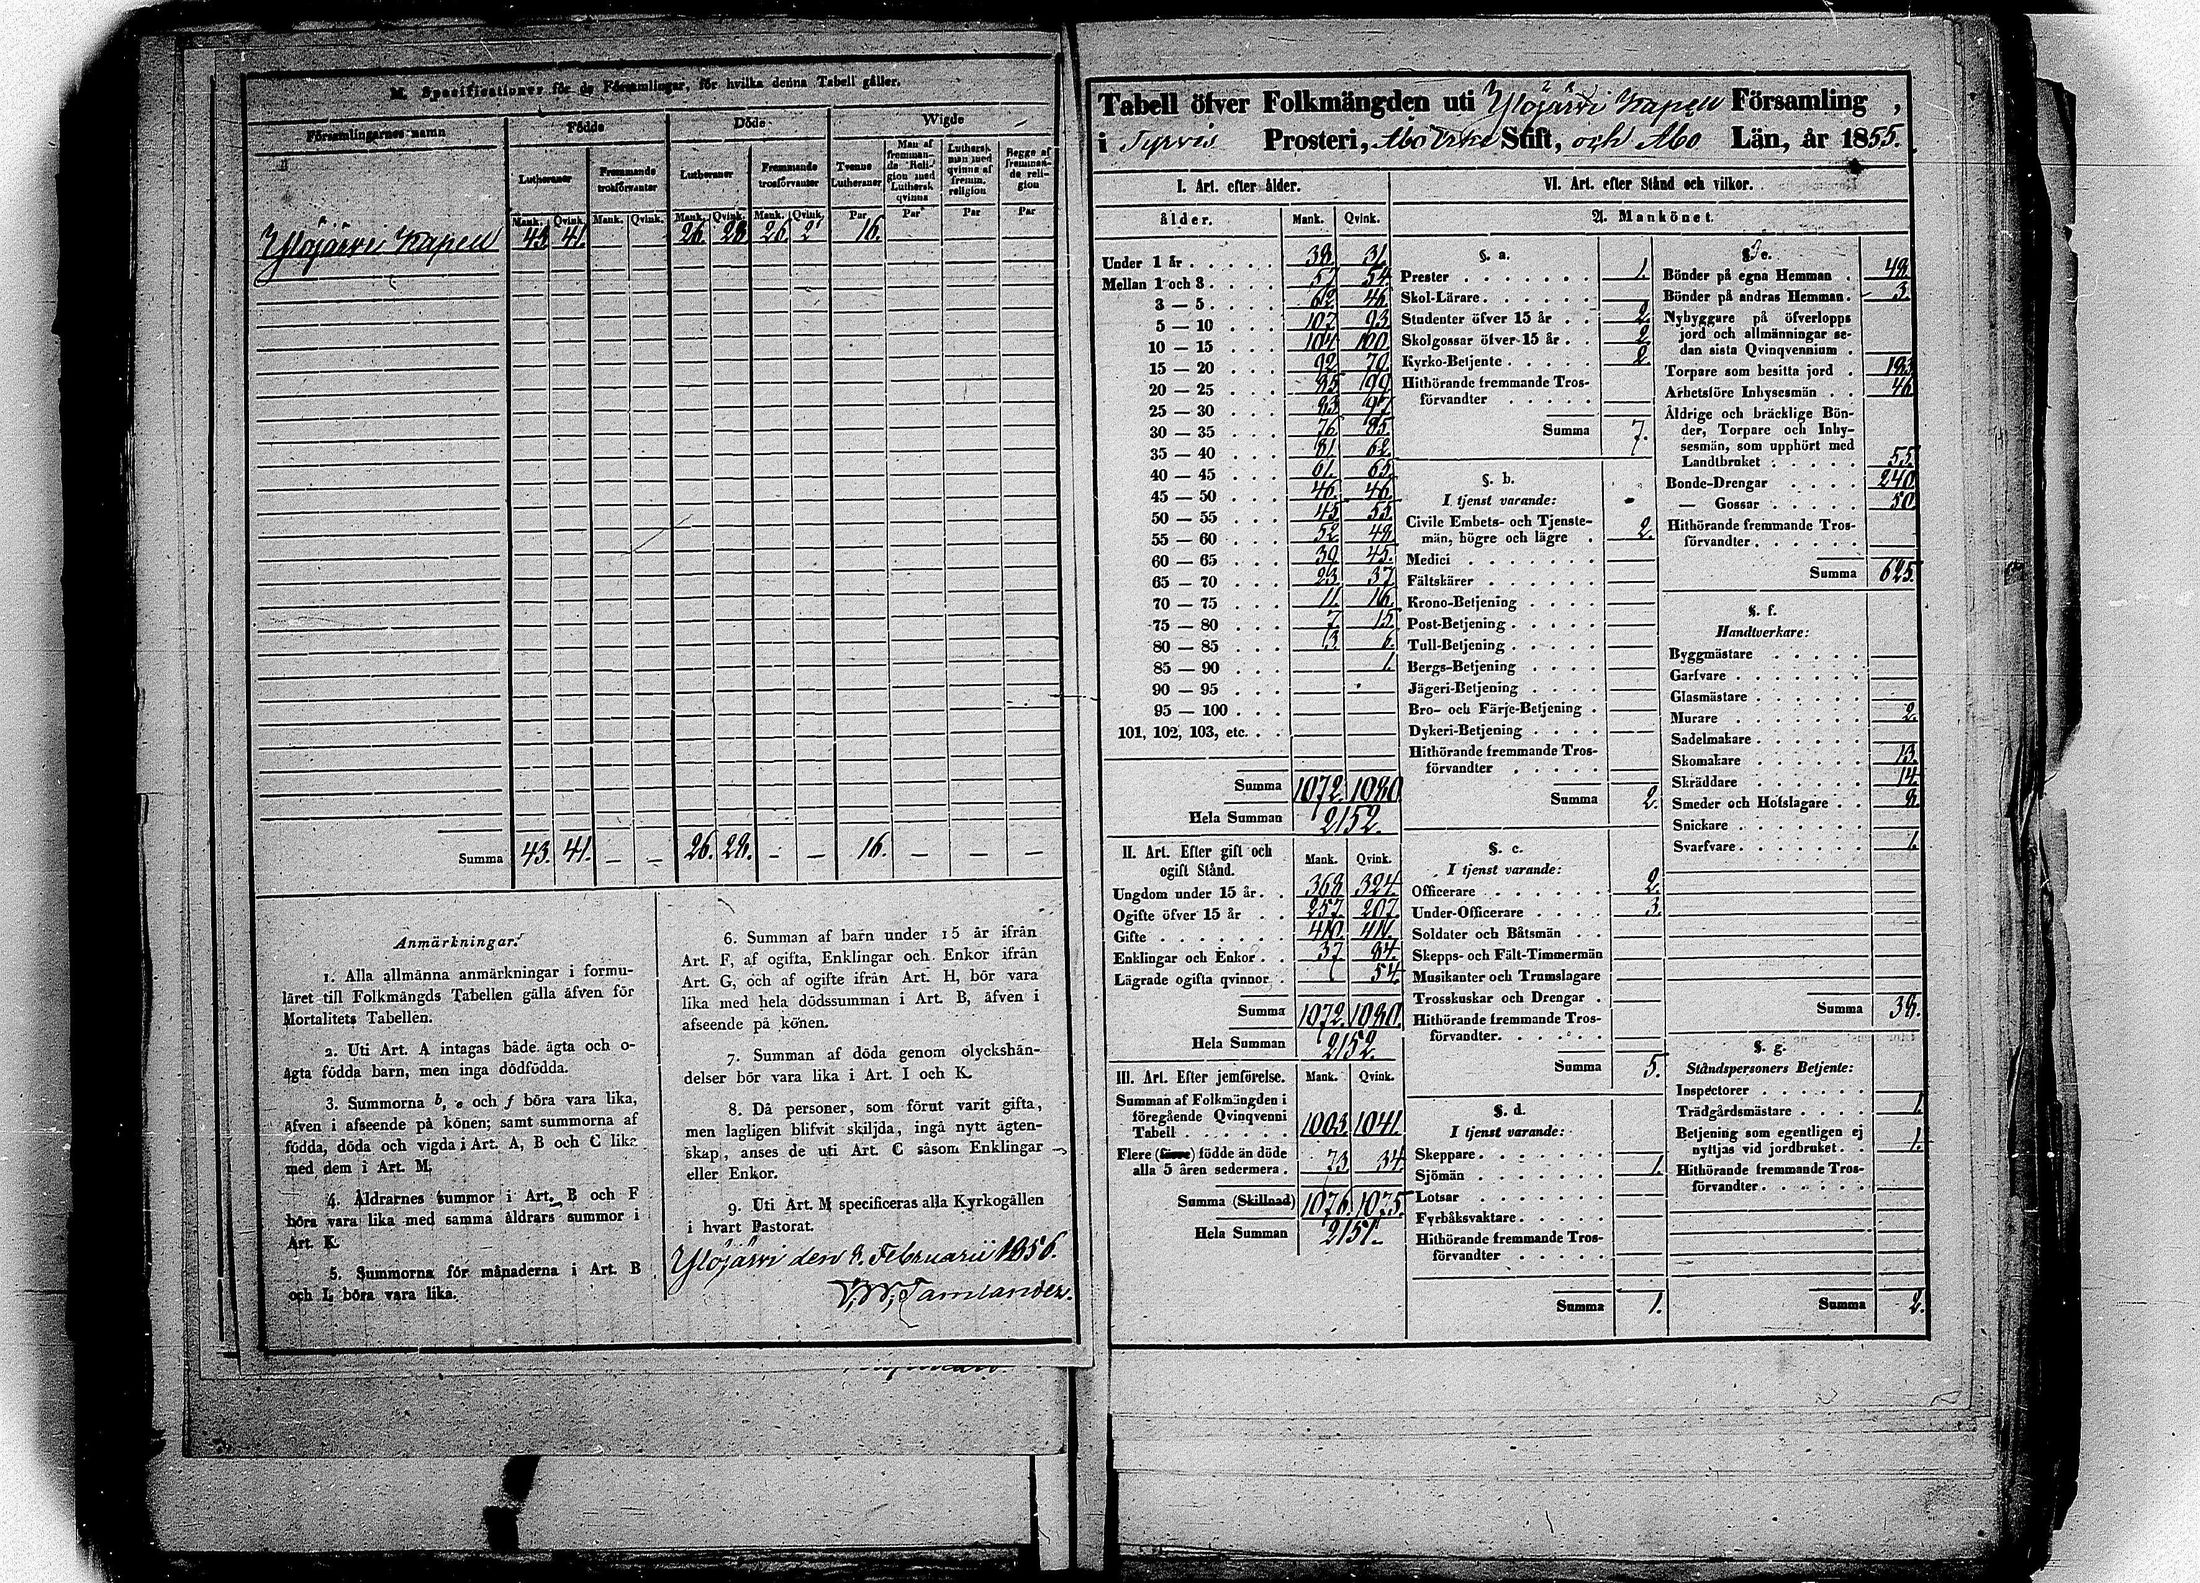 M. Specificationer för de Församlingar, för hvilka denna Tabell gäller.
Församlingarnes namn
Födde
Döde
Wigde
Lutheraner
Fremmande trosförvanter
Lutheraner
Fremmande trosförvanter
Tvenne Lutheraner
Man af fremmande Religion med Luthersk qvinna
Luthersk man med qvinna af fremm. religion
Begge af fremmande religion
Mank. Qvink. Mank. Qvink. Mank. Qvink. Mank. Qvink. Par Par Par Par
Ylöjärvi Kapell 43. 41. — — 26. 28. 16.
Summa 43. 41. — — 26. 28. — — 16. — — —
Anmärkningar.
1. Alla allmänna anmärkningar i formu-
läret till Folkmängds Tabellen gälla äfven för
Mortalitets Tabellen.
2. Uti Art. A intagas både ägta och o-
ägta födda barn, men inga dödfödda.
3. Summorna b, e och f böra vara lika,
äfven i afseende på könen; samt summorna af
födda, döda och vigda i Art. A, B och C lika
med dem i Art. M.
4. Åldrarnes summor i Art. B och F
böra vara lika med samma åldrars summor i
Art. K.
5. Summorna för månaderna i Art. B
och L böra vara lika.
6. Summan af barn under 15 år ifrån
Art. F, af ogifta, Enklingar och Enkor ifrån
Art. G, och af ogifte ifrån Art. H, bör vara
lika med hela dödssumman i Art. B, äfven i
afseende på könen.
7. Summan af döda genom olyckshän-
delser bör vara lika i Art. I och K.
8. Då personer, som förut varit gifta,
men lagligen blifvit skiljda, ingå nytt ägten-
skap, anses de uti Art. C såsom Enklingar
eller Enkor.
9. Uti Art. M specificeras alla Kyrkogällen
i hvart Pastorat.
Ylöjärvi den 8. Februarii 1856.
Tamlander.
Tabell öfver Folkmängden uti Ylöjärvi Kapell Församling,
i Tyrvis Prosteri, Åbo Erke Stift, och Åbo Län, år 1855.
I. Art. efter ålder.
Ålder. Mank. Qvink.
Under 1 år 38. 31.
Mellan 1 och 3 57. 54.
3 — 5 62. 46.
5 — 10 107. 93.
10 — 15 104. 100.
15 — 20 92. 79.
20 — 25 85. 99.
25 — 30 83. 97.
30 — 35 76. 85.
35 — 40 81. 62.
40 — 45 61. 65.
45 — 50 46. 46.
50 — 55 45. 55.
55 — 60 52. 48.
60 — 65 39. 45.
65 — 70 23. 37.
70 — 75 11. 16.
75 — 80 7. 15.
80 — 85 3. 6.
85 — 90 1.
90 — 95
95 — 100
101, 102, 103, etc.
Summa 1072. 1080.
Hela Summan 2152.
II. Art. Efter gift och ogift Stånd. Mank. Qvink.
Ungdom under 15 år 368. 324.
Ogifte öfver 15 år 257. 207.
Gifte
Enklingar och Enkor 37. 84.
Lägrade ogifta qvinnor 54.
Summa 1072. 1080.
Hela Summan 2152.
III. Art. Efter jemförelse. Mank. Qvink.
Summan af Folkmängden i
föregående Qvinqvenni
Tabell 1003. 1041.
Flere (färre) födde än döde
alla 5 åren sedermera 73. 34.
Summa (Skillnad) 1076. 1075.
Hela Summan 2151.
VI. Art. efter Stånd och vilkor.
A. Mankönet.
§. a.
Prester 1.
Skol-Lärare
Studenter öfver 15 år 2.
Skolgossar öfver 15 år 2.
Kyrko-Betjente 2.
Hithörande fremmande Tros-
förvandter
Summa 7.
§. b.
I tjenst varande:
Civile Embets- och Tjenste-
män, högre och lägre 2.
Medici
Fältskärer
Krono-Betjening
Post-Betjening
Tull-Betjening
Bergs-Betjening
Jägeri-Betjening
Bro- och Färje-Betjening
Dykeri-Betjening
Hithörande fremmande Tros-
förvandter
Summa 2.
§. c.
I tjenst varande:
Officerare 2.
Under-Officerare 3.
Soldater och Båtsmän
Skepps- och Fält-Timmermän
Musikanter och Trumslagare
Trosskuskar och Drengar
Hithörande fremmande Tros-
förvandter
Summa 5.
§. d.
I tjenst varande:
Skeppare
Sjömän 1.
Lotsar
Fyrbåksvaktare
Hithörande fremmande Tros-
förvandter
Summa 1.
§. e.
Bönder på egna Hemman 48.
Bönder på andras Hemman 3.
Nybyggare på öfverlopps
jord och allmänningar se-
dan sista Qvinqvennium
Torpare som besitta jord 183.
Arbetsföre Inhysesmän 46.
Åldrige och bräcklige Bön-
der, Torpare och Inhy-
sesmän, som upphört med
Landtbruket 55.
Bonde-Drengar 240.
— Gossar 50.
Hithörande fremmande Tros-
förvandter
Summa 625.
§. f.
Handtverkare:
Byggmästare
Garfvare
Glasmästare
Murare 2.
Sadelmakare
Skomakare 13.
Skräddare 14.
Smeder och Hofslagare 8.
Snickare
Svarfvare 1.
Summa 38.
§. g.
Ståndspersoners Betjente:
Inspectorer
Trädgårdsmästare 1.
Betjening som egentligen ej
nyttjas vid jordbruket 1.
Hithörande fremmande Tros-
förvandter
Summa 2.